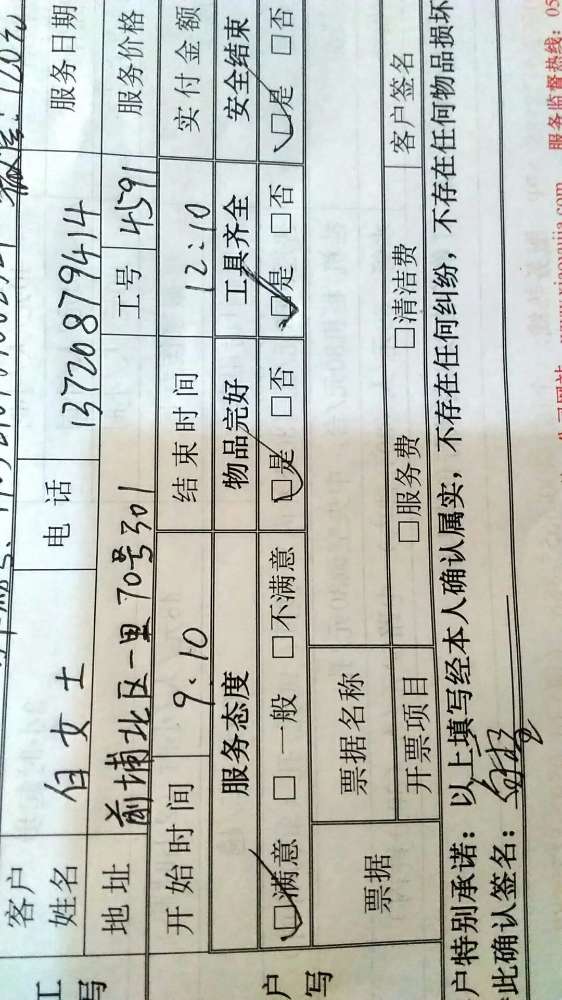 客户姓名 白女士 电话 13720879414 服务日期
地址 前埔北区一里70号301 工号 4591 服务价格
开始时间 9:10 结束时间 12:10 实付金额
服务态度 物品完好 工具齐全 安全结束
☑满意 □一般 □不满意 ☑是 □否 ☑是 □否 ☑是 □否
票据 票据名称
开票项目 □服务费 □清洁费 客户签名
户特别承诺：以上填写经本人确认属实，不存在任何纠纷，不存在任何物品损坏
此确认签名：
服务监督热线：05